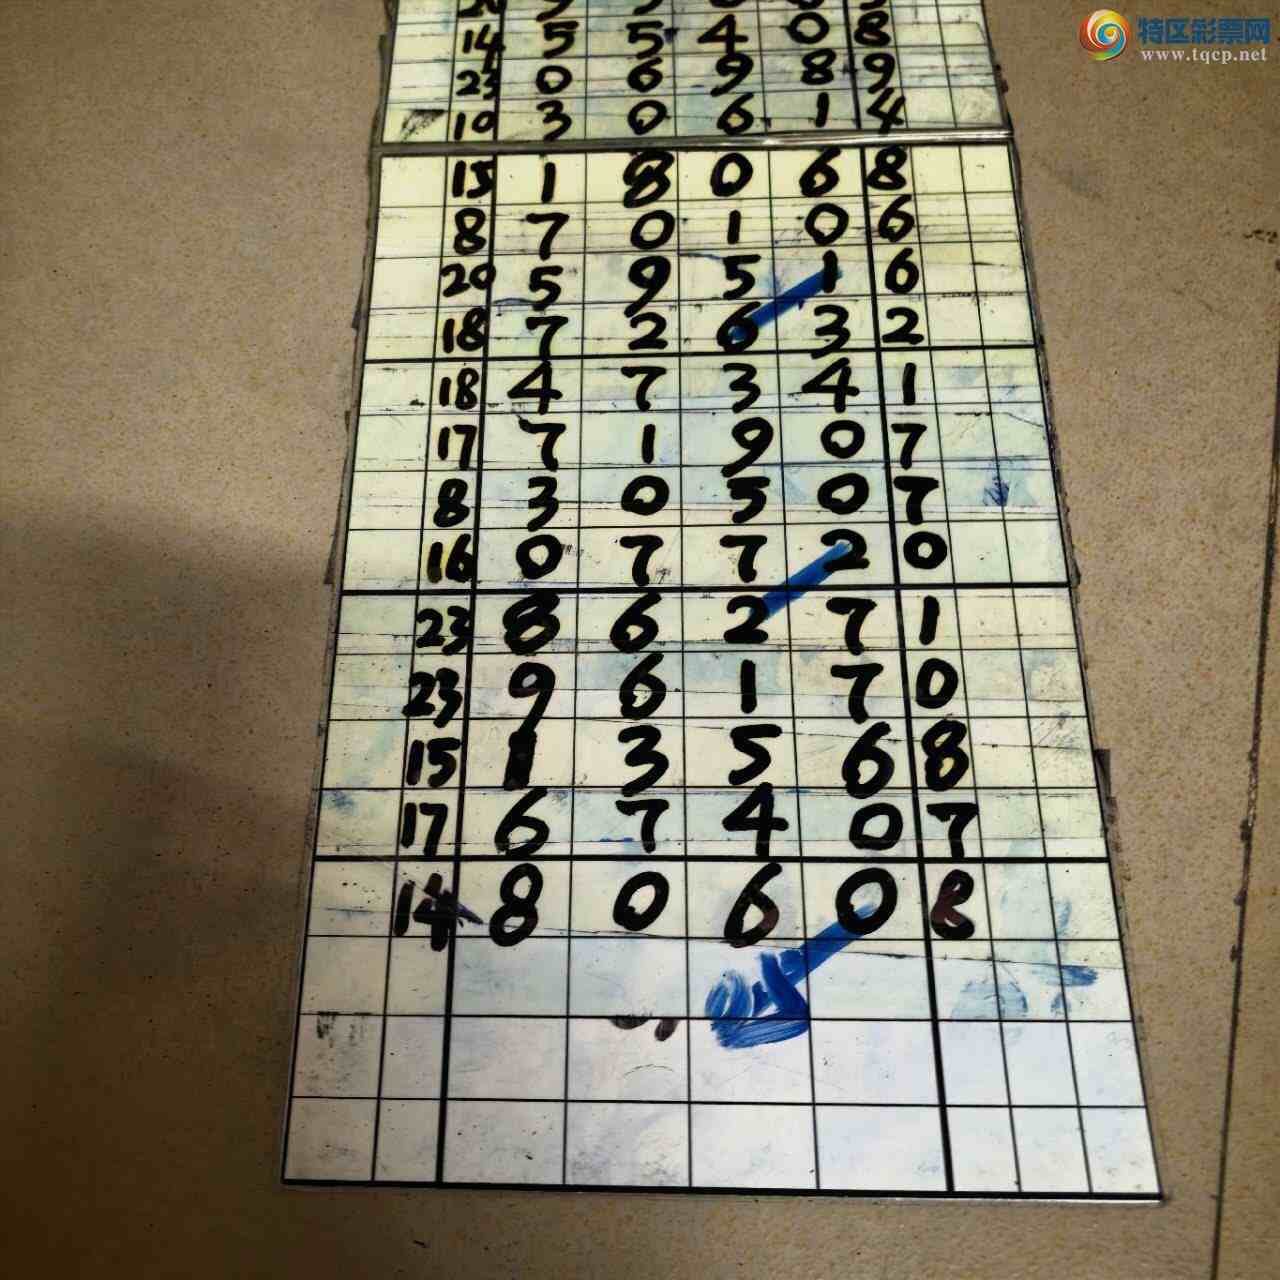 特区彩票网
www.tqcp.net
14 5 5 4 0 8
23 0 6 9 8 9
10 3 0 6 1 4
15 1 8 0 6 8
8 7 0 1 0 6
20 5 9 5 1 6
18 7 2 6 3 2
18 4 7 3 4 1
17 7 1 9 0 7
8 3 0 5 0 7
16 0 7 7 2 0
23 8 6 2 7 1
23 9 6 1 7 0
15 1 3 5 6 8
17 6 7 4 0 7
14 8 0 6 0 8